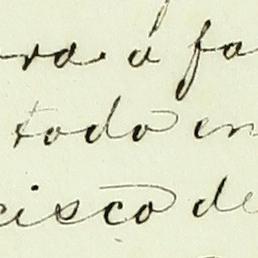 ra á fa
todo en
cisco de